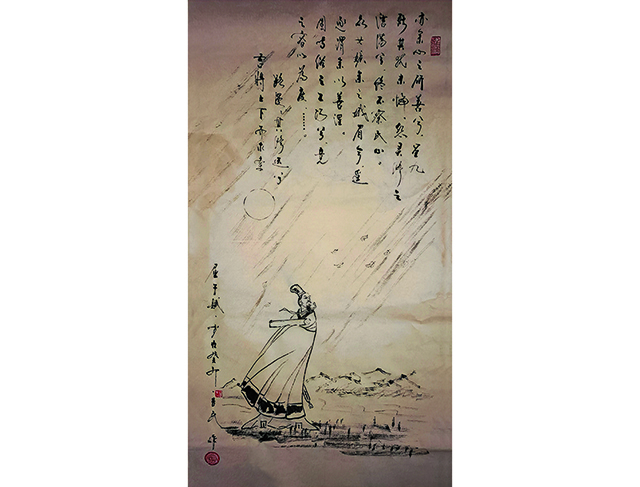 亦余心之所善兮,虽九
死其犹未悔。怨灵修之
浩荡兮,终不察民心。
众女嫉余之蛾眉兮,谣
诼谓余以善淫。
固时俗之工巧兮,竞
容以为度……
路漫其修远兮
吾将上下而求索
屈子赋。岁在癸卯
作